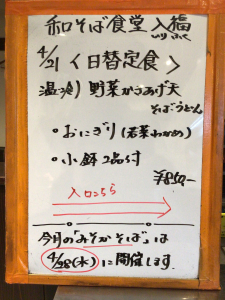 和そば食堂 入福
いりふく
4/21 〈日替定食〉
温冷) 野菜かきあげ天
そばうどん
・おにぎり (若菜わかめ)
・小鉢2品付
¥850-
入口こちら
今月の「みそかそば」は
4/28(木)に開催します。